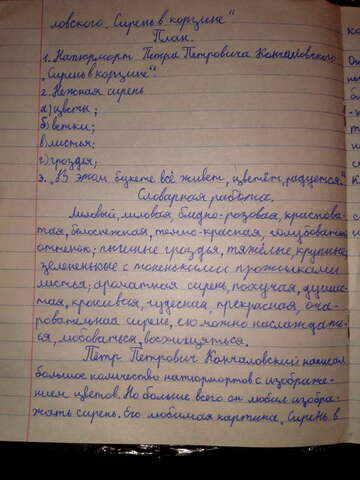 ловского „Сирень в корзине"
План.
1. Натюрморт Петра Петровича Кончаловского
„Сирень в корзине".
2. Нежная сирень
а) цветы;
б) ветки;
в) листья;
г) гроздья;
3. „В этом букете всё живёт, цветёт, радуется."
Словарная работа.
Лиловый, лиловая, бледно-розовая, краснова-
тая, белоснежная, темно-красная, голубоватый
оттенок; пышные гроздья, тяжёлые, крупные;
зелененькие с тоненькими прожилками
листья; ароматная сирень, пахучая, души-
стая, чудесная, прекрасная, оча-
ровательная сирень, ею можно наслаждать-
ся, любоваться, восхищаться.
Пётр Петрович Кончаловский написал
большое количество натюрмортов с изображе-
нием цветов. Но больше всего он любил изобра-
жать сирень. Его любимая картина „Сирень в